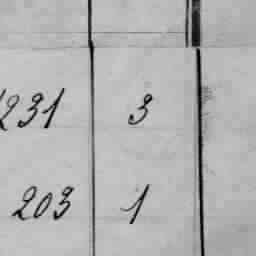 231 3
203 1